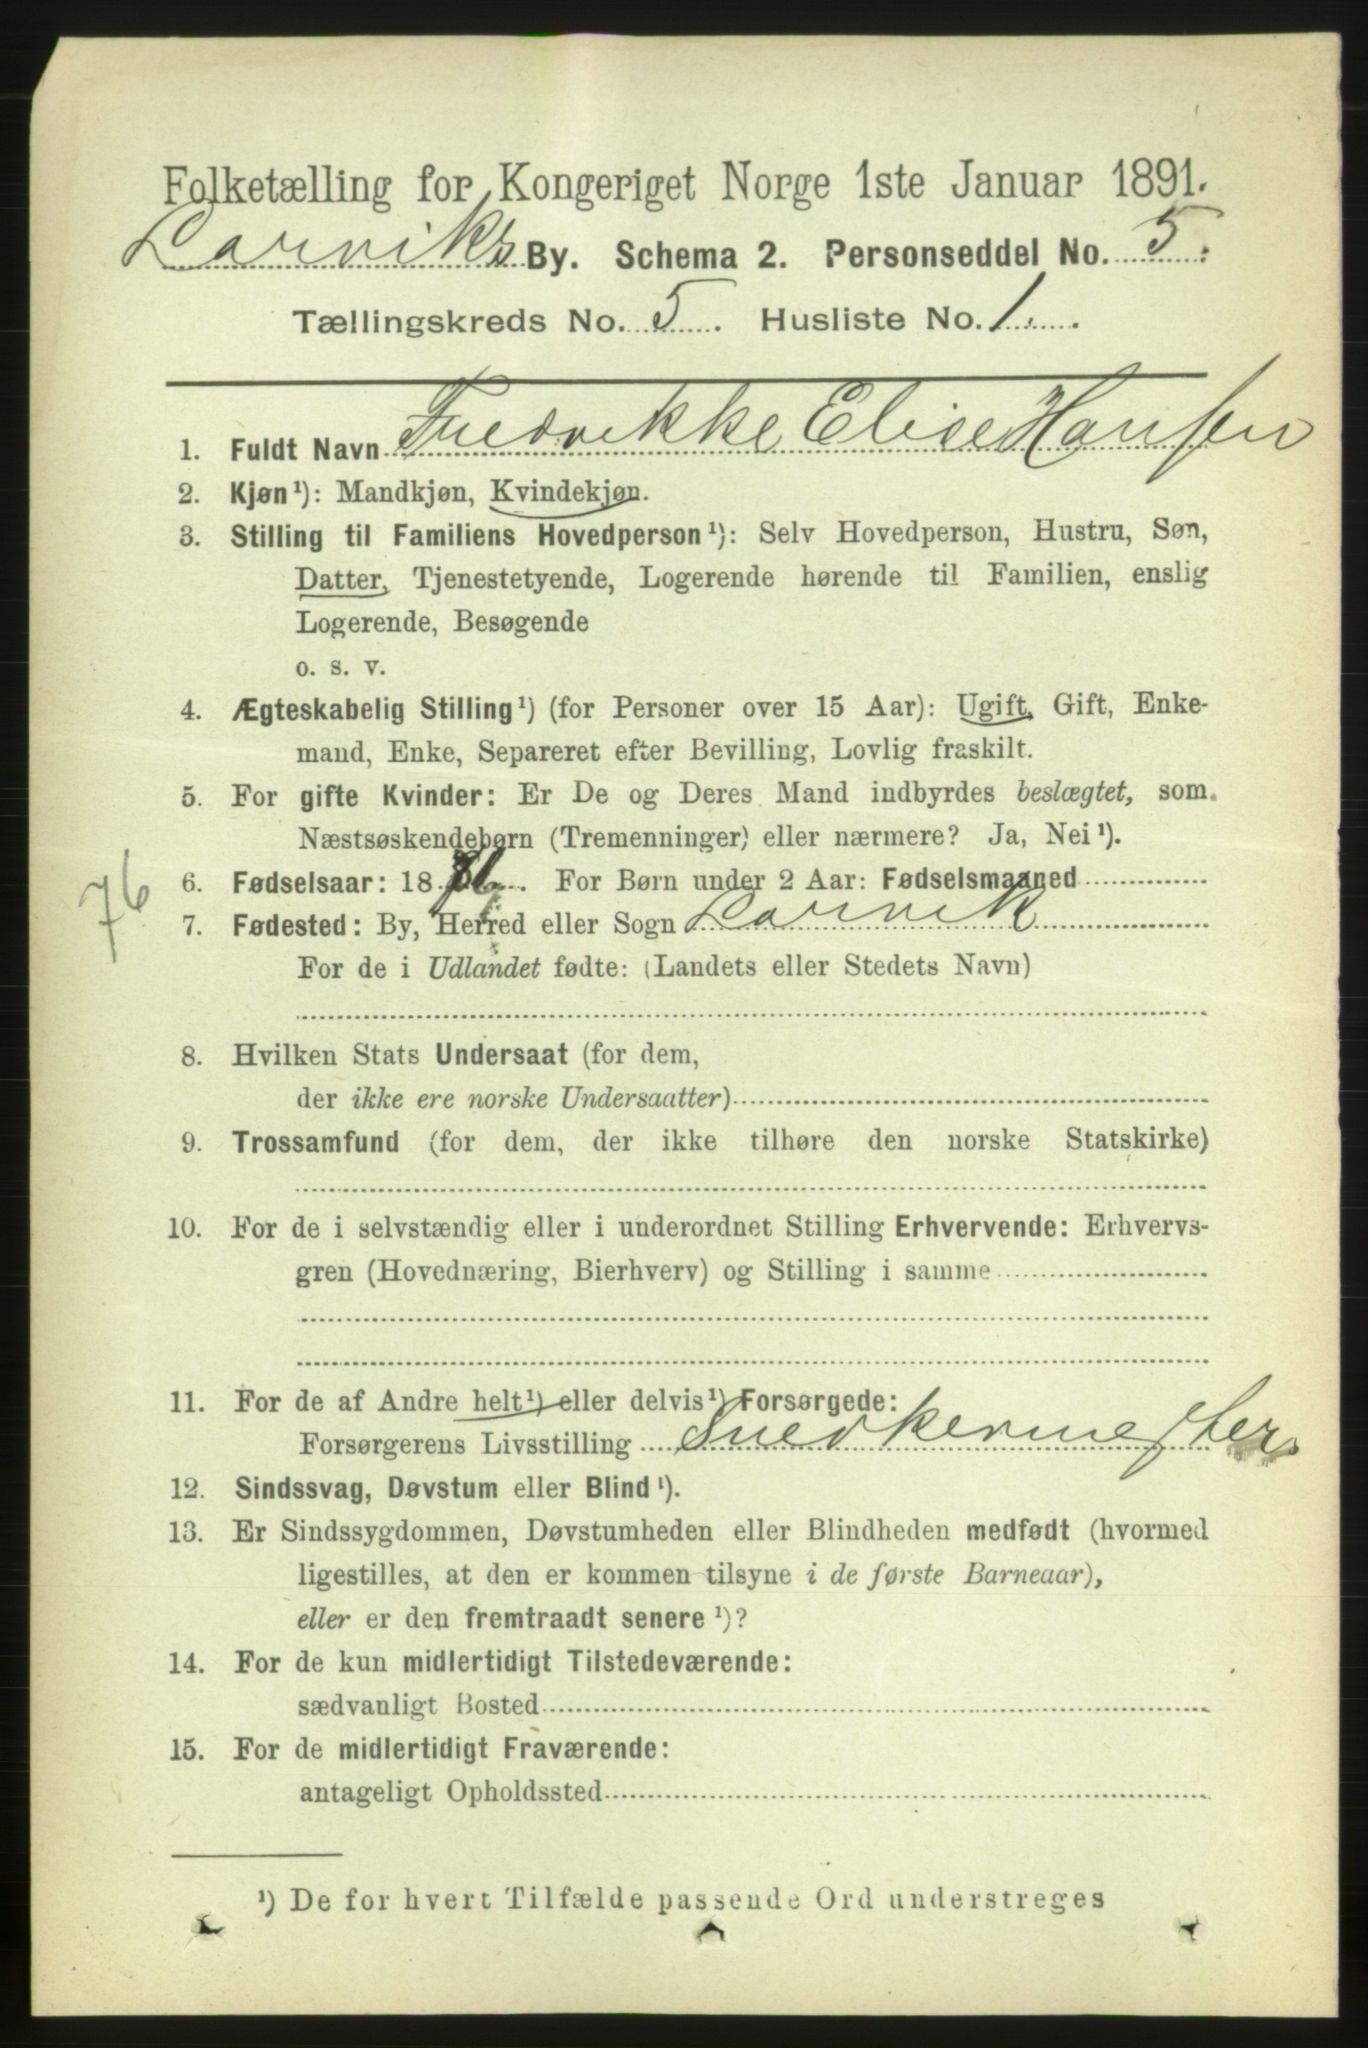 Folketælling for Kongeriget Norge 1ste Januar 1891.
Larviks By. Schema 2. Personseddel No. 5.
Tællingskreds No. 5. Husliste No. 1.
1. Fuldt Navn Fredrikke Elise Hansen
2. Kjøn¹): Mandkjøn, Kvindekjøn.
3. Stilling til Familiens Hovedperson¹): Selv Hovedperson, Hustru, Søn,
Datter, Tjenestetyende, Logerende hørende til Familien, enslig
Logerende, Besøgende
o. s. v.
4. Ægteskabelig Stilling¹) (for Personer over 15 Aar): Ugift, Gift, Enke-
mand, Enke, Separeret efter Bevilling, Lovlig fraskilt.
5. For gifte Kvinder: Er De og Deres Mand indbyrdes beslægtet, som
Næstsøskendebørn (Tremenninger) eller nærmere? Ja, Nei¹).
76
6. Fødselsaar: 1876. For Børn under 2 Aar: Fødselsmaaned
7. Fødested: By, Herred eller Sogn Larvik
For de i Udlandet fødte: (Landets eller Stedets Navn)
8. Hvilken Stats Undersaat (for dem,
der ikke ere norske Undersaatter)
9. Trossamfund (for dem, der ikke tilhøre den norske Statskirke)
10. For de i selvstændig eller i underordnet Stilling Erhvervende: Erhvervs-
gren (Hovednæring, Bierhverv) og Stilling i samme
11. For de af Andre helt¹) eller delvis¹) Forsørgede:
Forsørgerens Livsstilling Snedkermester
12. Sindssvag, Døvstum eller Blind¹).
13. Er Sindssygdommen, Døvstumheden eller Blindheden medfødt (hvormed
ligestilles, at den er kommen tilsyne i de første Barneaar),
eller er den fremtraadt senere¹)?
14. For de kun midlertidigt Tilstedeværende:
sædvanligt Bosted
15. For de midlertidigt Fraværende:
antageligt Opholdssted
¹) De for hvert Tilfælde passende Ord understreges